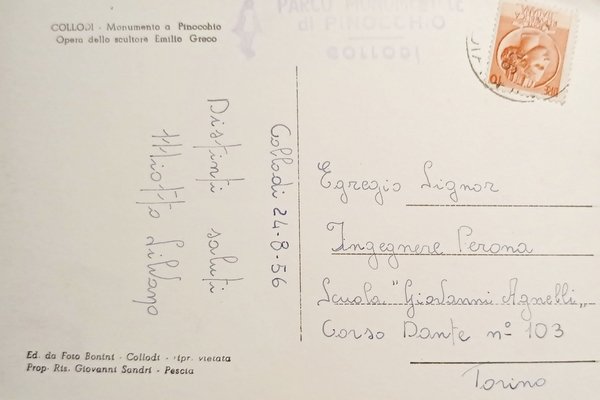 COLLODI - Monumento a Pinocchio
Opera dello scultore Emilio Greco
PARCO MONUMENTALE
di PINOCCHIO
COLLODI
Collodi 24-8-56
Distinti saluti
Miotto Silvano
Egregio Signor
Ingegnere Perona
Scuola "Giovanni Agnelli"
Corso Dante nº 103
Torino
Ed. da Foto Bonini - Collodi - ripr. vietata
Prop. Ris. Giovanni Sandri - Pescia